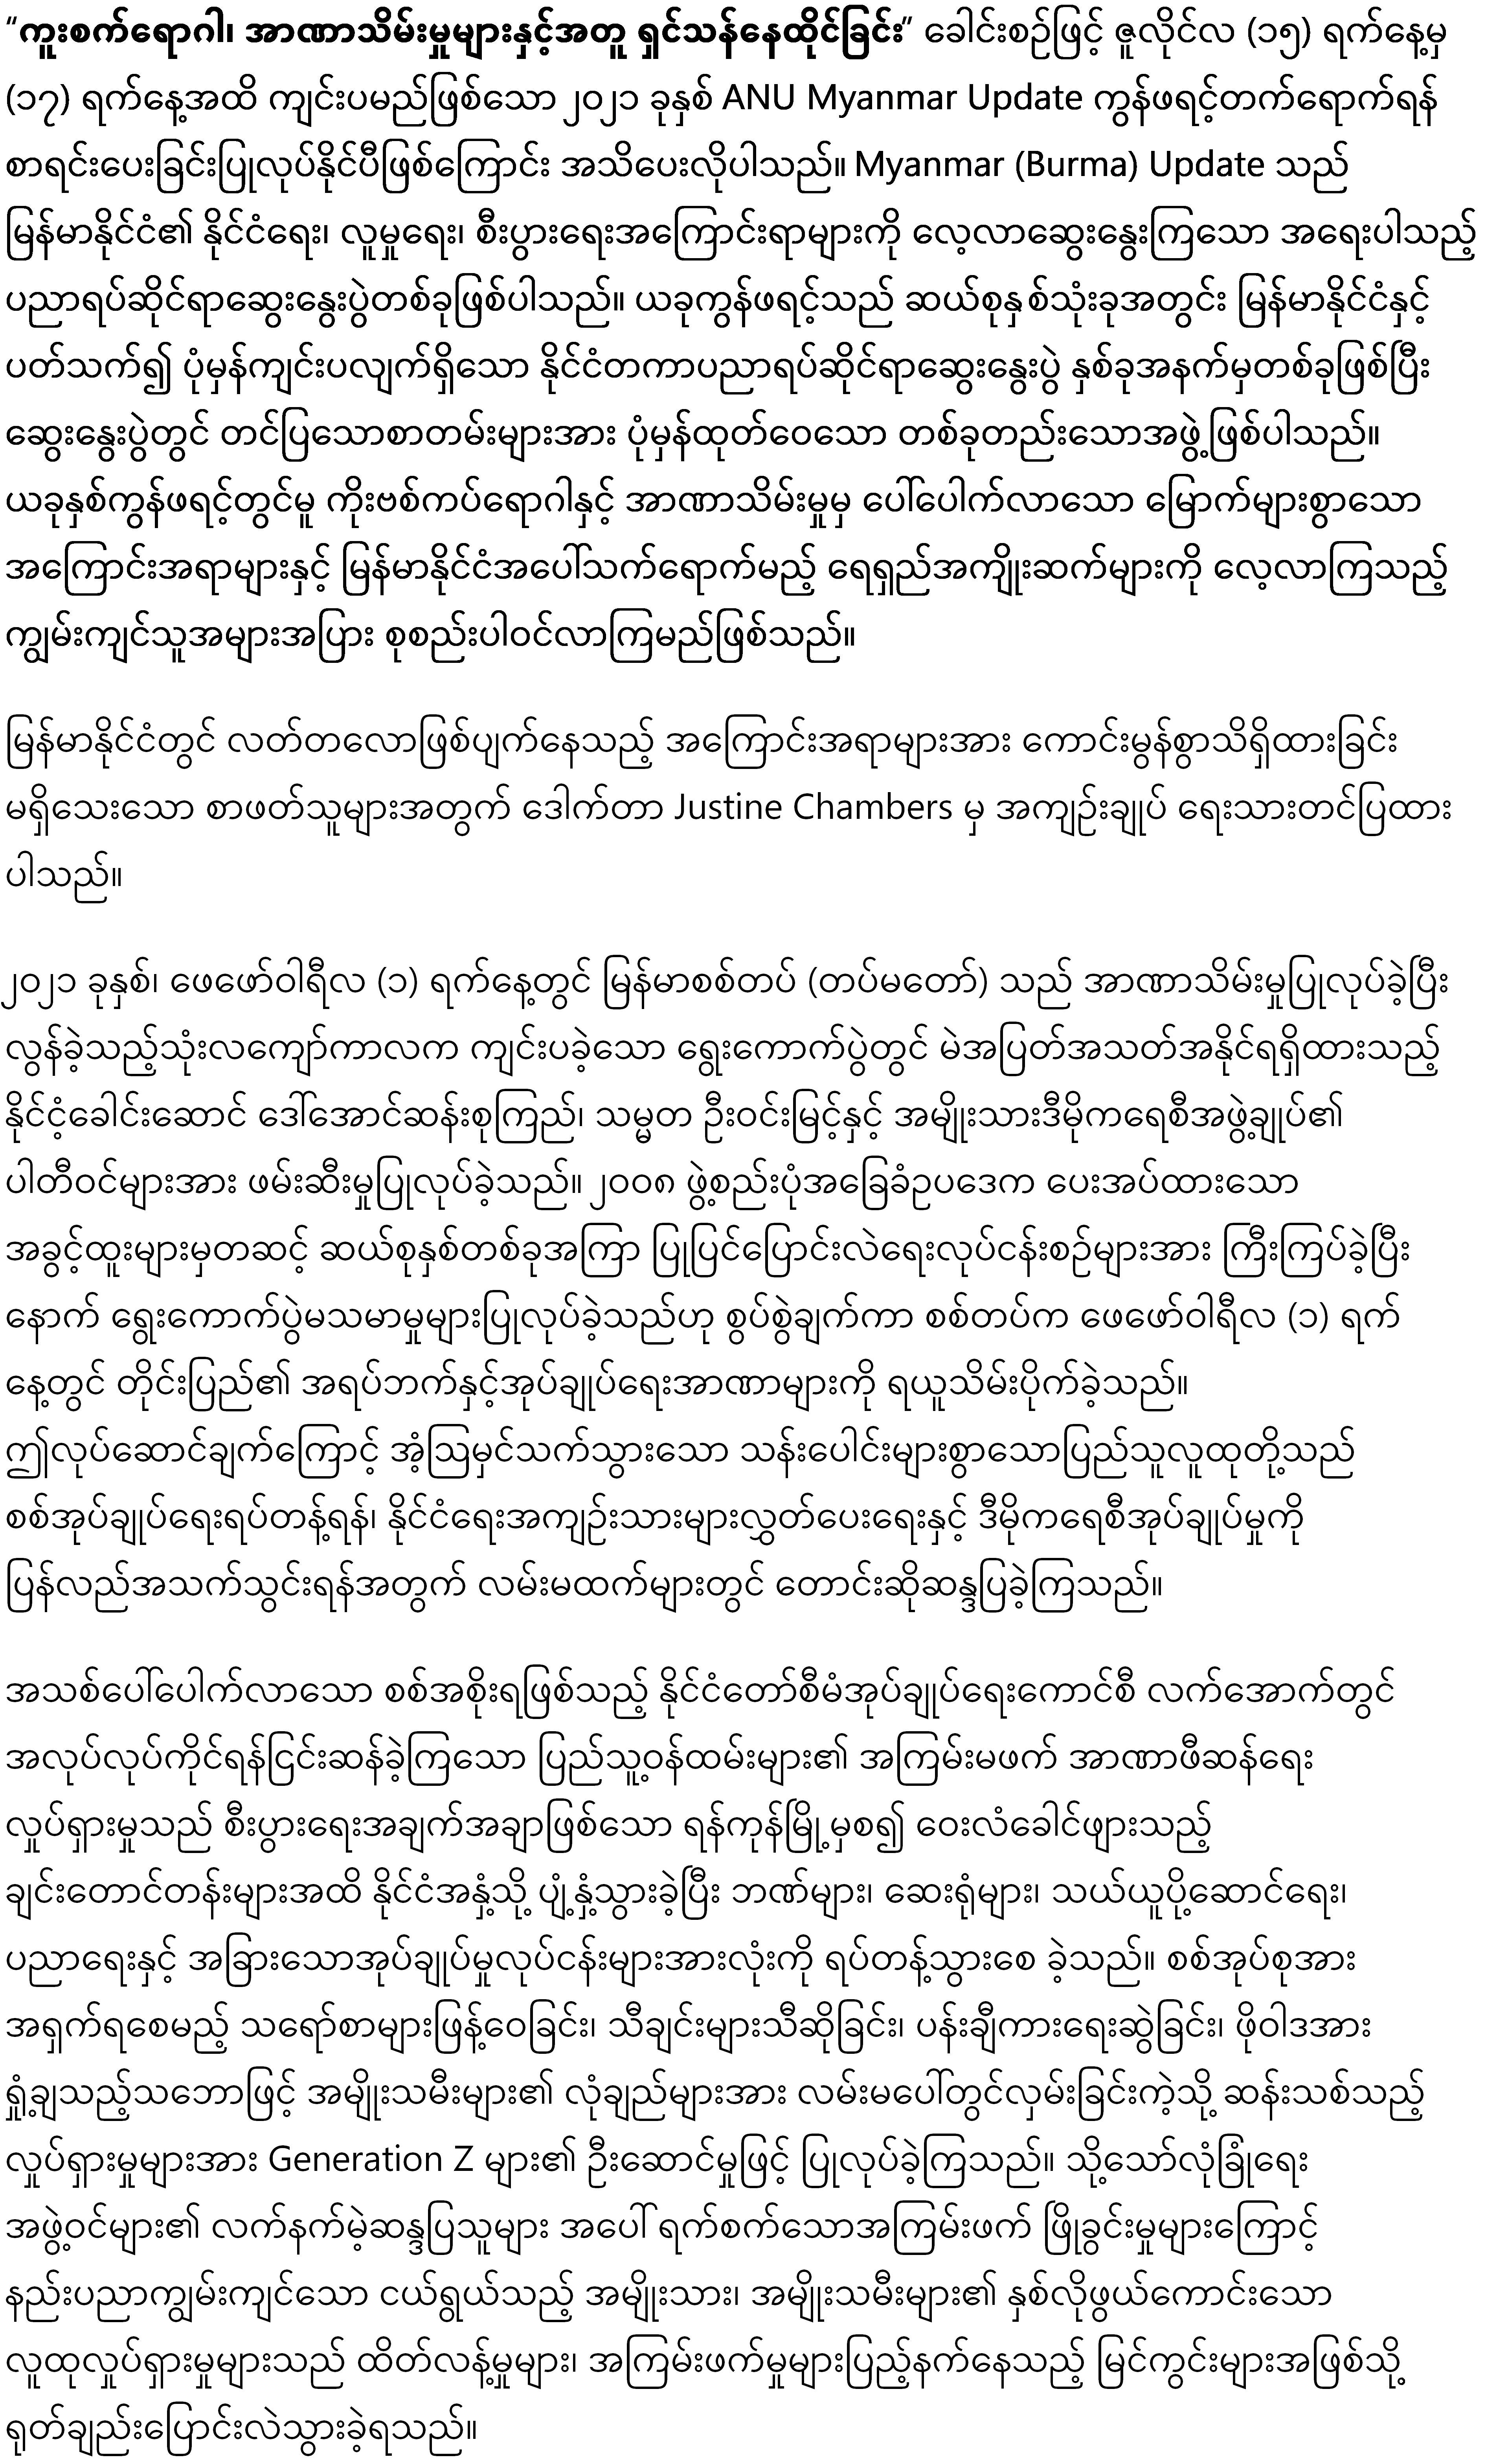 “ကူးစက်ရောဂါ၊ အာဏာသိမ်းမှုများနှင့်အတူ ရှင်သန်နေထိုင်ခြင်း” ခေါင်းစဉ်ဖြင့် ဇူလိုင်လ (၁၅) ရက်နေ့မှ
(၁၇) ရက်နေ့အထိ ကျင်းပမည်ဖြစ်သော ၂၀၂၁ ခုနှစ် ANU Myanmar Update ကွန်ဖရင့်တက်ရောက်ရန်
စာရင်းပေးခြင်းပြုလုပ်နိုင်ပီဖြစ်ကြောင်း အသိပေးလိုပါသည်။ Myanmar (Burma) Update သည်
မြန်မာနိုင်ငံ၏ နိုင်ငံရေး၊ လူမှုရေး၊ စီးပွားရေးအကြောင်းရာများကို လေ့လာဆွေးနွေးကြသော အရေးပါသည့်
ပညာရပ်ဆိုင်ရာဆွေးနွေးပွဲတစ်ခုဖြစ်ပါသည်။ ယခုကွန်ဖရင့်သည် ဆယ်စုနှစ်သုံးခုအတွင်း မြန်မာနိုင်ငံနှင့်
ပတ်သက်၍ ပုံမှန်ကျင်းပလျက်ရှိသော နိုင်ငံတကာပညာရပ်ဆိုင်ရာဆွေးနွေးပွဲ နှစ်ခုအနက်မှတစ်ခုဖြစ်ပြီး
ဆွေးနွေးပွဲတွင် တင်ပြသောစာတမ်းများအား ပုံမှန်ထုတ်ဝေသော တစ်ခုတည်းသောအဖွဲ့ဖြစ်ပါသည်။
ယခုနှစ်ကွန်ဖရင့်တွင်မူ ကိုးဗစ်ကပ်ရောဂါနှင့် အာဏာသိမ်းမှုမှ ပေါ်ပေါက်လာသော မြောက်များစွာသော
အကြောင်းအရာများနှင့် မြန်မာနိုင်ငံအပေါ်သက်ရောက်မည့် ရေရှည်အကျိုးဆက်များကို လေ့လာကြသည့်
ကျွမ်းကျင်သူအများအပြား စုစည်းပါဝင်လာကြမည်ဖြစ်သည်။
မြန်မာနိုင်ငံတွင် လတ်တလောဖြစ်ပျက်နေသည့် အကြောင်းအရာများအား ကောင်းမွန်စွာသိရှိထားခြင်း
မရှိသေးသော စာဖတ်သူများအတွက် ဒေါက်တာ Justine Chambers မှ အကျဉ်းချုပ် ရေးသားတင်ပြထား
ပါသည်။
၂၀၂၁ ခုနှစ်၊ ဖေဖော်ဝါရီလ (၁) ရက်နေ့တွင် မြန်မာစစ်တပ် (တပ်မတော်) သည် အာဏာသိမ်းမှုပြုလုပ်ခဲ့ပြီး
လွန်ခဲ့သည့်သုံးလကျော်ကာလက ကျင်းပခဲ့သော ရွေးကောက်ပွဲတွင် မဲအပြတ်အသတ်အနိုင်ရရှိထားသည့်
နိုင်ငံ့ခေါင်းဆောင် ဒေါ်အောင်ဆန်းစုကြည်၊ သမ္မတ ဦးဝင်းမြင့်နှင့် အမျိုးသားဒီမိုကရေစီအဖွဲ့ချုပ်၏
ပါတီဝင်များအား ဖမ်းဆီးမှုပြုလုပ်ခဲ့သည်။ ၂၀၀၈ ဖွဲ့စည်းပုံအခြေခံဥပဒေက ပေးအပ်ထားသော
အခွင့်ထူးများမှတဆင့် ဆယ်စုနှစ်တစ်ခုအကြာ ပြုပြင်ပြောင်းလဲရေးလုပ်ငန်းစဉ်များအား ကြီးကြပ်ခဲ့ပြီး
နောက် ရွေးကောက်ပွဲမသမာမှုများပြုလုပ်ခဲ့သည်ဟု စွပ်စွဲချက်ကာ စစ်တပ်က ဖေဖော်ဝါရီလ (၁) ရက်
နေ့တွင် တိုင်းပြည်၏ အရပ်ဘက်နှင့်အုပ်ချုပ်ရေးအာဏာများကို ရယူသိမ်းပိုက်ခဲ့သည်။
ဤလုပ်ဆောင်ချက်ကြောင့် အံ့ဩမှင်သက်သွားသော သန်းပေါင်းများစွာသောပြည်သူလူထုတို့သည်
စစ်အုပ်ချုပ်ရေးရပ်တန့်ရန်၊ နိုင်ငံရေးအကျဉ်းသားများလွှတ်ပေးရေးနှင့် ဒီမိုကရေစီအုပ်ချုပ်မှုကို
ပြန်လည်အသက်သွင်းရန်အတွက် လမ်းမထက်များတွင် တောင်းဆိုဆန္ဒပြခဲ့ကြသည်။
အသစ်ပေါ်ပေါက်လာသော စစ်အစိုးရဖြစ်သည့် နိုင်ငံတော်စီမံအုပ်ချုပ်ရေးကောင်စီ လက်အောက်တွင်
အလုပ်လုပ်ကိုင်ရန်ငြင်းဆန်ခဲ့ကြသော ပြည်သူ့ဝန်ထမ်းများ၏ အကြမ်းမဖက် အာဏာဖီဆန်ရေး
လှုပ်ရှားမှုသည် စီးပွားရေးအချက်အချာဖြစ်သော ရန်ကုန်မြို့မှစ၍ ဝေးလံခေါင်ဖျားသည့်
ချင်းတောင်တန်းများအထိ နိုင်ငံအနှံ့သို့ ပျံ့နှံ့သွားခဲ့ပြီး ဘဏ်များ၊ ဆေးရုံများ၊ သယ်ယူပို့ဆောင်ရေး၊
ပညာရေးနှင့် အခြားသောအုပ်ချုပ်မှုလုပ်ငန်းများအားလုံးကို ရပ်တန့်သွားစေ ခဲ့သည်။ စစ်အုပ်စုအား
အရှက်ရစေမည့် သရော်စာများဖြန့်ဝေခြင်း၊ သီချင်းများသီဆိုခြင်း၊ ပန်းချီကားရေးဆွဲခြင်း၊ ဖိုဝါဒအား
ရှုံ့ချသည့်သဘောဖြင့် အမျိုးသမီးများ၏ လုံချည်များအား လမ်းမပေါ်တွင်လှမ်းခြင်းကဲ့သို့ ဆန်းသစ်သည့်
လှုပ်ရှားမှုများအား Generation Z များ၏ ဦးဆောင်မှုဖြင့် ပြုလုပ်ခဲ့ကြသည်။ သို့သော်လုံခြုံရေး
အဖွဲ့ဝင်များ၏ လက်နက်မဲ့ဆန္ဒပြသူများ အပေါ် ရက်စက်သောအကြမ်းဖက် ဖြိုခွင်းမှုများကြောင့်
နည်းပညာကျွမ်းကျင်သော ငယ်ရွယ်သည့် အမျိုးသား၊ အမျိုးသမီးများ၏ နှစ်လိုဖွယ်ကောင်းသော
လူထုလှုပ်ရှားမှုများသည် ထိတ်လန့်မှုများ၊ အကြမ်းဖက်မှုများပြည့်နက်နေသည့် မြင်ကွင်းများအဖြစ်သို့
ရုတ်ချည်းပြောင်းလဲသွားခဲ့ရသည်။